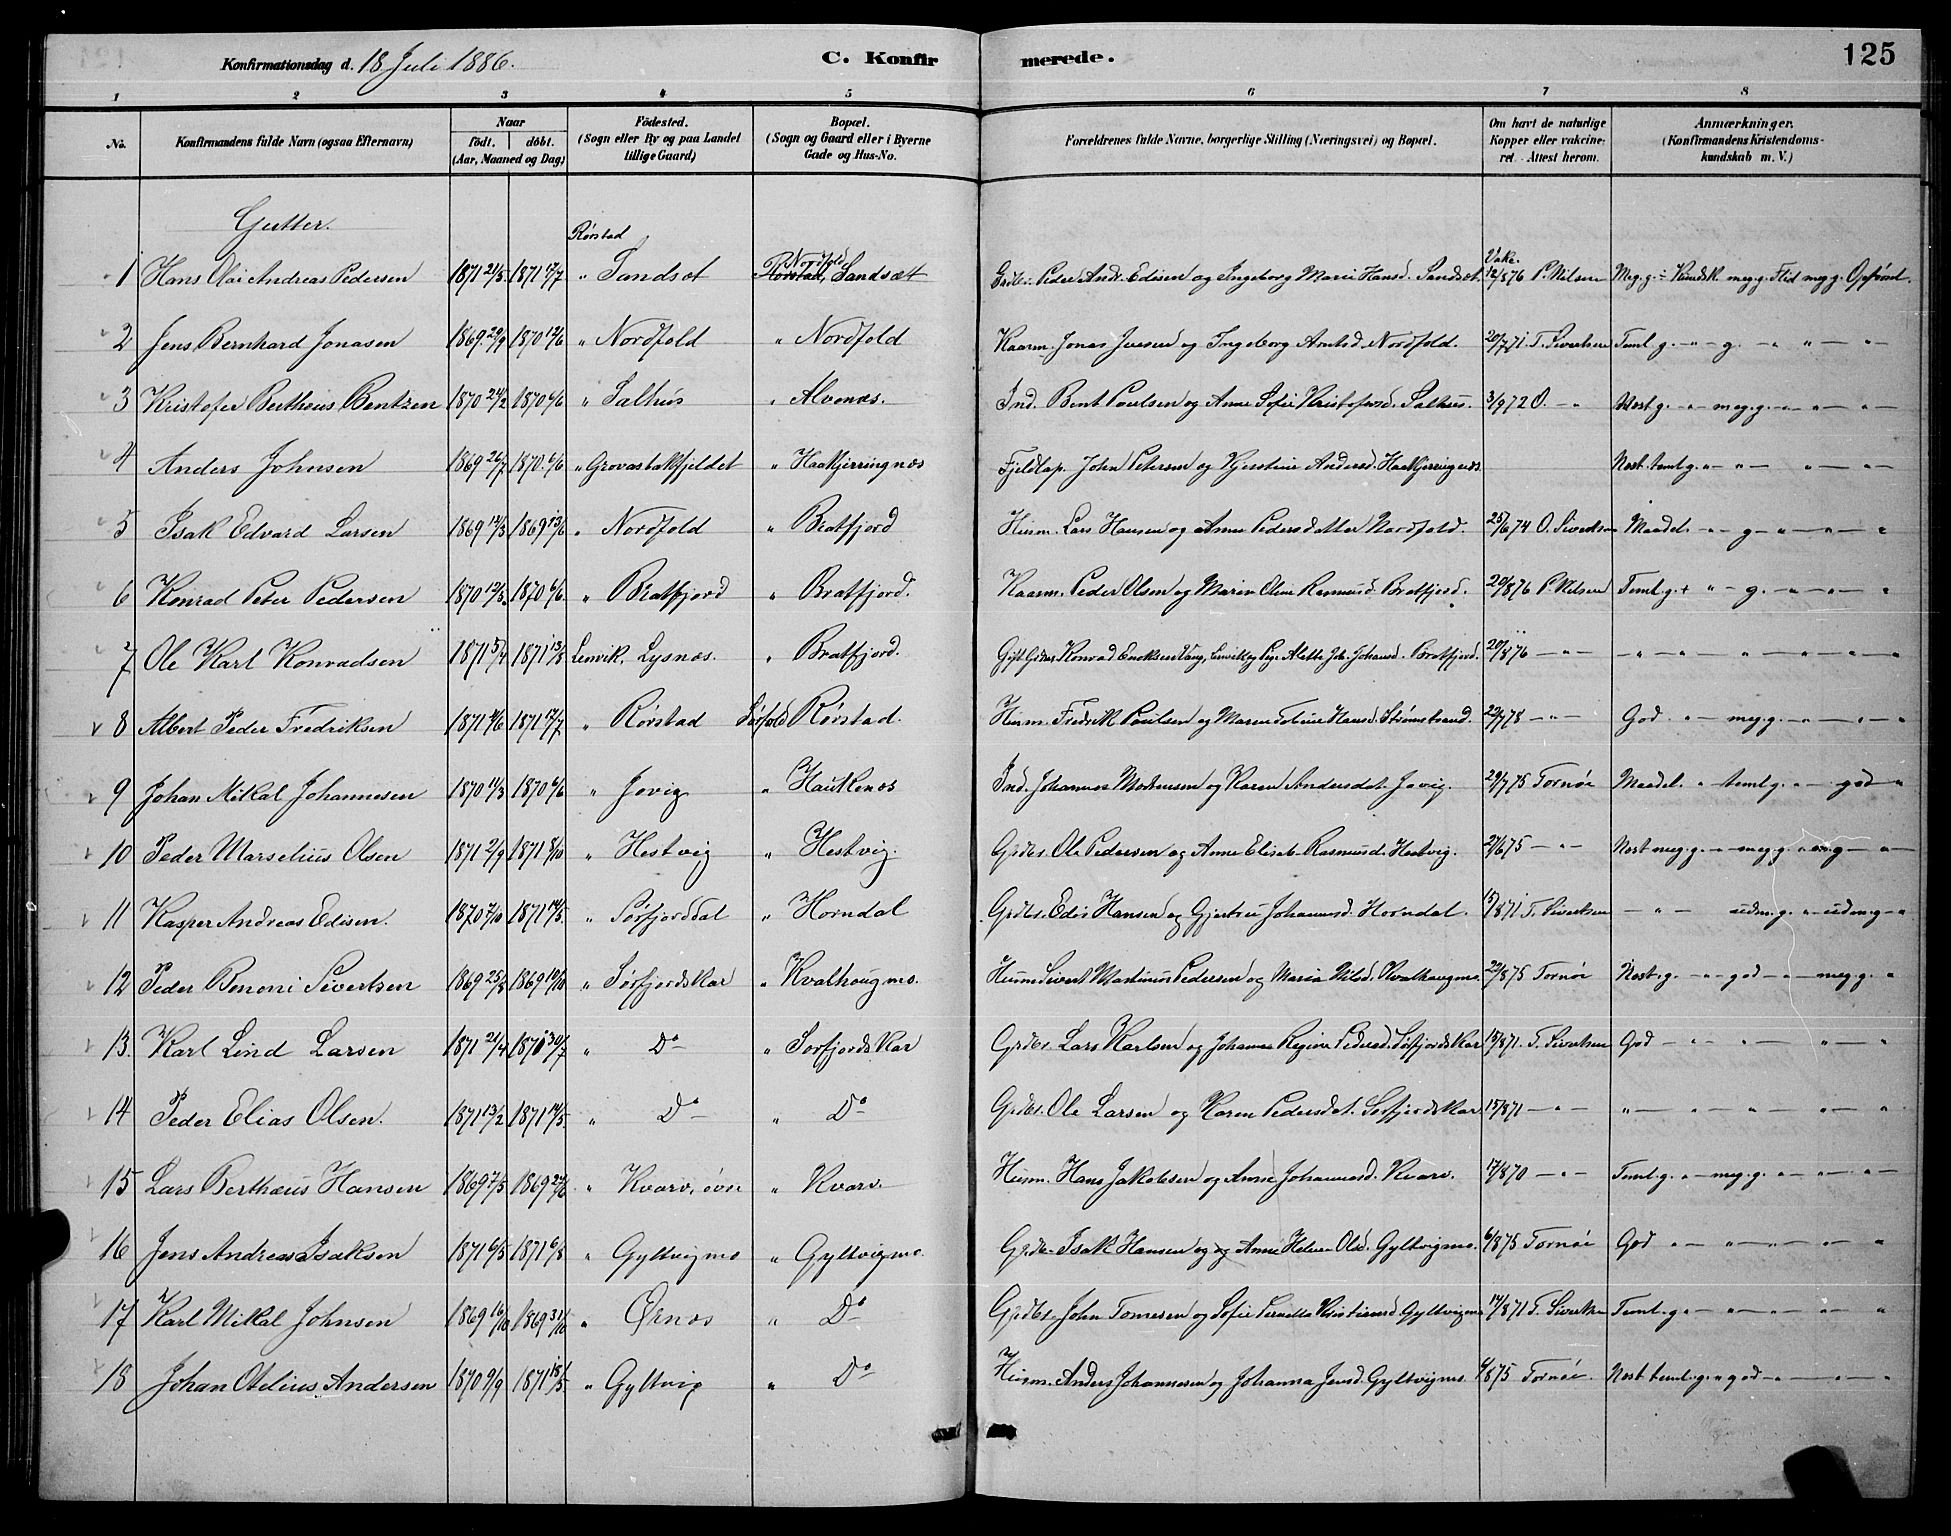 Konfirmationsdag d. 18 Juli 1886. C. Konfirmerede. 125
1 2 3 4 5 6 7 8
No. Konfirmandens fulde Navn (ogsaa Efternavn) Naar født. døbt. (Aar, Maaned og Dag) Fødested. (Sogn eller By og paa Landet tillige Gaard) Bopæl. (Sogn og Gaard eller i Byerne Gade og Hus-No. Forældrenes fulde Navne, borgerlige Stilling (Næringsvei) og Bopæl. Om havt de naturlige Kopper eller vakcineret. Attest herom. Anmærkninger. (Konfirmandens Kristendomskundskab m. V.)
Gutter.
Rørstad Nordfold Vakc.
1 Hans Olai Andreas Pedersen 1871 21/5. 1871 17/7 " Sandsæt Rørstad, Sandsæt Grdbr. Peder Andr. Edisen og Ingeborg Marie Hansd. Sandsæt. 12/8 76 P. Nilsen Meg. g. Kundsk. meg. g. Flid meg g. Opførsel.
2 Jens Bernhard Jonasen 1869 29/9 1870 12/6 " Nordfold " Nordfold Kaarm. Jonas Jversen og Ingeborg Arntsd. Nordfold. 20/7 71. T. Sivertsen Teml. g. - " - g. - " " - " -
3 Kristofer Berthæus Bentzen 1870 24/2 1870 6/6 " Salhus " Alvenæs. Ind. Bent Poulsen og Anne Sofie Kristofersd. Salhus. 3/9 72 O. - " Næst g. - " - meg. g. - " - " - " -
4 Anders Johnsen 1869 26/7 1870 6/6 " Grovasbakfjeldet " Haakjerringnæs Fjeldlap. John Petersen og Kjerstine Andersd. Haakjerringnæs. Næst teml g. " - " - " - " -
5 Isak Edvard Larsen 1869 14/3 1869 13/6 " Nordfold " Bratfjord Husm. Lars Hansen og Anne Pedersdatter Nordfold. 25/6 74 O. Sivertsen Maadel. - " - g - " - " - "
6 Konrad Peter Pedersen 1870 12/3. 1870 6/6. " Bratfjord " Bratfjord. Kaarm. Peder Olsen og Maren Oline Rasmusd. Bratfjord. 20/8 76 P. Nilsen Teml. g. + " - g. - " - " - "
7 Ole Karl Konradsen 1871 5/4 1871 13/8 Lenvik, Lysnæs. " Bratfjord. Gift Grdbr. Konrad Enoksen Vang, Lenvik og Pige Alette Joh. Johansd. Bratfjord. 20/8 76 - " - - " - " - " - " - " - "
8 Albert Peder Fredriksen 1871 4/6 1871 17/7 " Rørstad Sørfold Rørstad. Husm. Fredrik Poulsen og Maren Tobine Hansd. Strømstrand. 29/7 78 - " - God " - meg. g. - " - " - "
9 Johan Mikal Johannesen 1870 11/3 1870 6/6 " Jovig " Hautkenæs Ind. Johannes Mortensen og Karen Andersdat. Jovig. 29/7 75 Tornøe Maadel. " - teml g. - " - god - "
10 Peder Marselius Olsen 1871 2/9 1871 8/10 " Hestvig " Hestvig. Grdbr. Ole Pedersen og Anne Elisab. Rasmusd. Hestvig. 27/6 75 - " - Næst meg. g. - " - meg. g. " - - " -
11 Kasper Andreas Edisen. 1870 7/10 1871 14/5. " Sørfjorddal " Horndal Grdbr. Edis Hansen og Gjertru Johannesd. Horndal. 15/8 71 T. Sivertsen - " - udm. g. " - udm. g - "
12 Peder Benoni Sivertsen 1869 25/8 1869 10/10 " Sørfjordskar " Kvalhaugmo. Husm. Sivert Martinus Pedersen og Maria Nilsd. Kvalhaugmo. 22/8 75 Tornøe Næst. g. - " - god - " - meg. g. "
13. Karl Lind Larsen 1871 21/4 1871 30/7 " Do " Sørfjordskar Grdbr. Lars Karlsen og Johanna Regine Pedersd. Sørfjordskar 15/8 71. T. Sivertsen God - " - " - " - "
14 Peder Elias Olsen. 1871 13/2 1871 14/5. " Do " Do Grdbr. Ole Larsen og Karen Pedersdat. Sørfjordskar 15/8 71 - " - " - " - " - " - "
15 Lars Berthæus Hansen 1869 7/5 1869 27/6 " Kvarv, øvre " Kvarv. Husm. Hans Jakobsen og Anne Johannesd. Kvarv. 17/8 70 - " - Teml. g. - " - meg. g. - " - " - "
16 Jens Andreas Isaksen 1871 6/5 1871 6/8 " Gyltvigmo " Gyltvigmo. Grdbr. Isak Hansen og og Anne Helene Olsd. Gyltvigmo. 6/8 75 Tornøe God " - " - " - " - "
17 Karl Mikal Johnsen 1869 16/10 1869 31/10 " Ørnæs " Do Grdbr. John Tomesen og Sofie Kristiansd. Gyltvigmo 14/8 71 T. Sivertsen Teml. g. " - " - " - "
18 Johan Otelius Andersen 1870 9/9 1871 18/5 " Gyltvig " Do Husm. Anders Johannesen og Johanna Jensd. Gyltvigmo. 4/8 75 Tornøe. Næst teml. g. " god - " - " - "